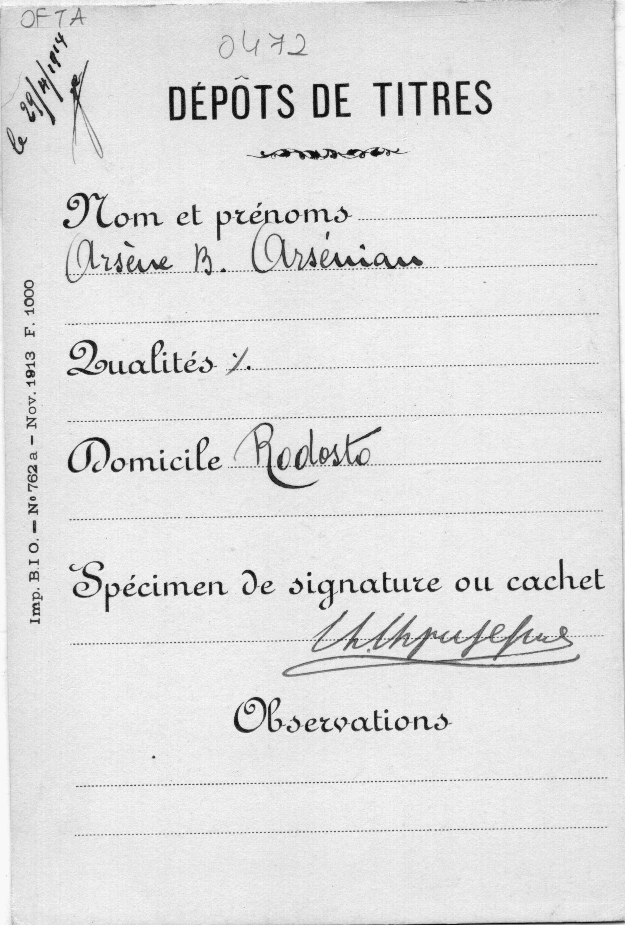 OFTA
0472
le 29/4/1914
DÉPÔTS DE TITRES
Nom et prénoms
Arsène B. Arsénian
Qualités %.
Domicile Rodosto
Spécimen de signature ou cachet
Observations
Imp. B.I O. — Nº 762 a — Nov. 1913 F. 1000